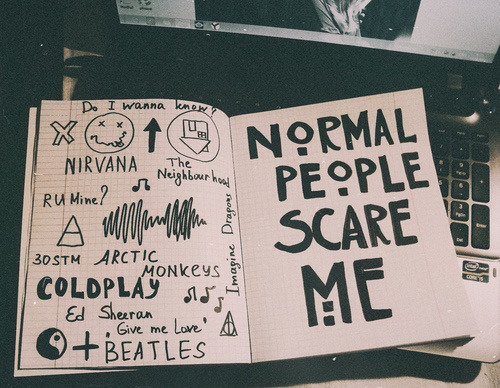 Do I wanna know?
X
NIRVANA
The
Neighbourhood
R U Mine?
Imagine Dragons
30STM
ARCTIC
MONKEYS
COLDPLAY
Ed Sheeran
'Give me Love'
+
BEATLES
NORMAL
PEOPLE
SCARE
ME
intel